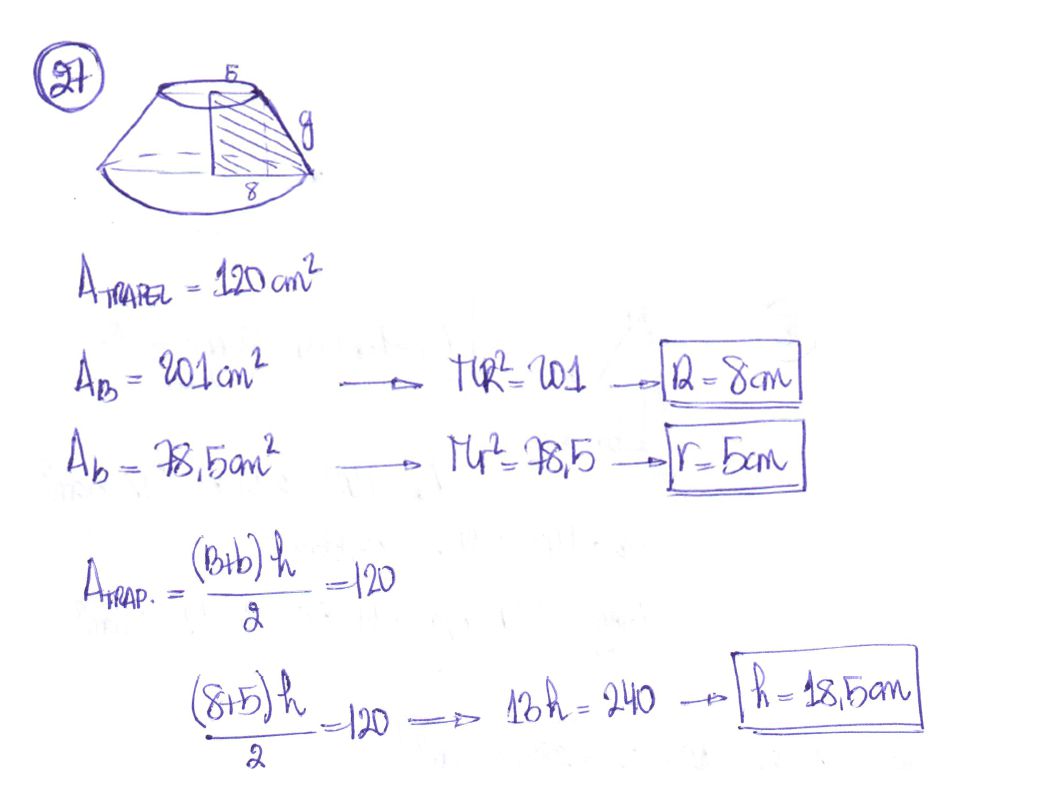 27
5
g
8
A TRAPEZ = 120 cm²
A_B = 201 cm² → πR² = 201 → R = 8cm
A_b = 78,5cm² → πr² = 78,5 → r = 5cm
A TRAP. = (B+b) h / 2 = 120
(8+5) h / 2 = 120 → 13h = 240 → h = 18,5cm